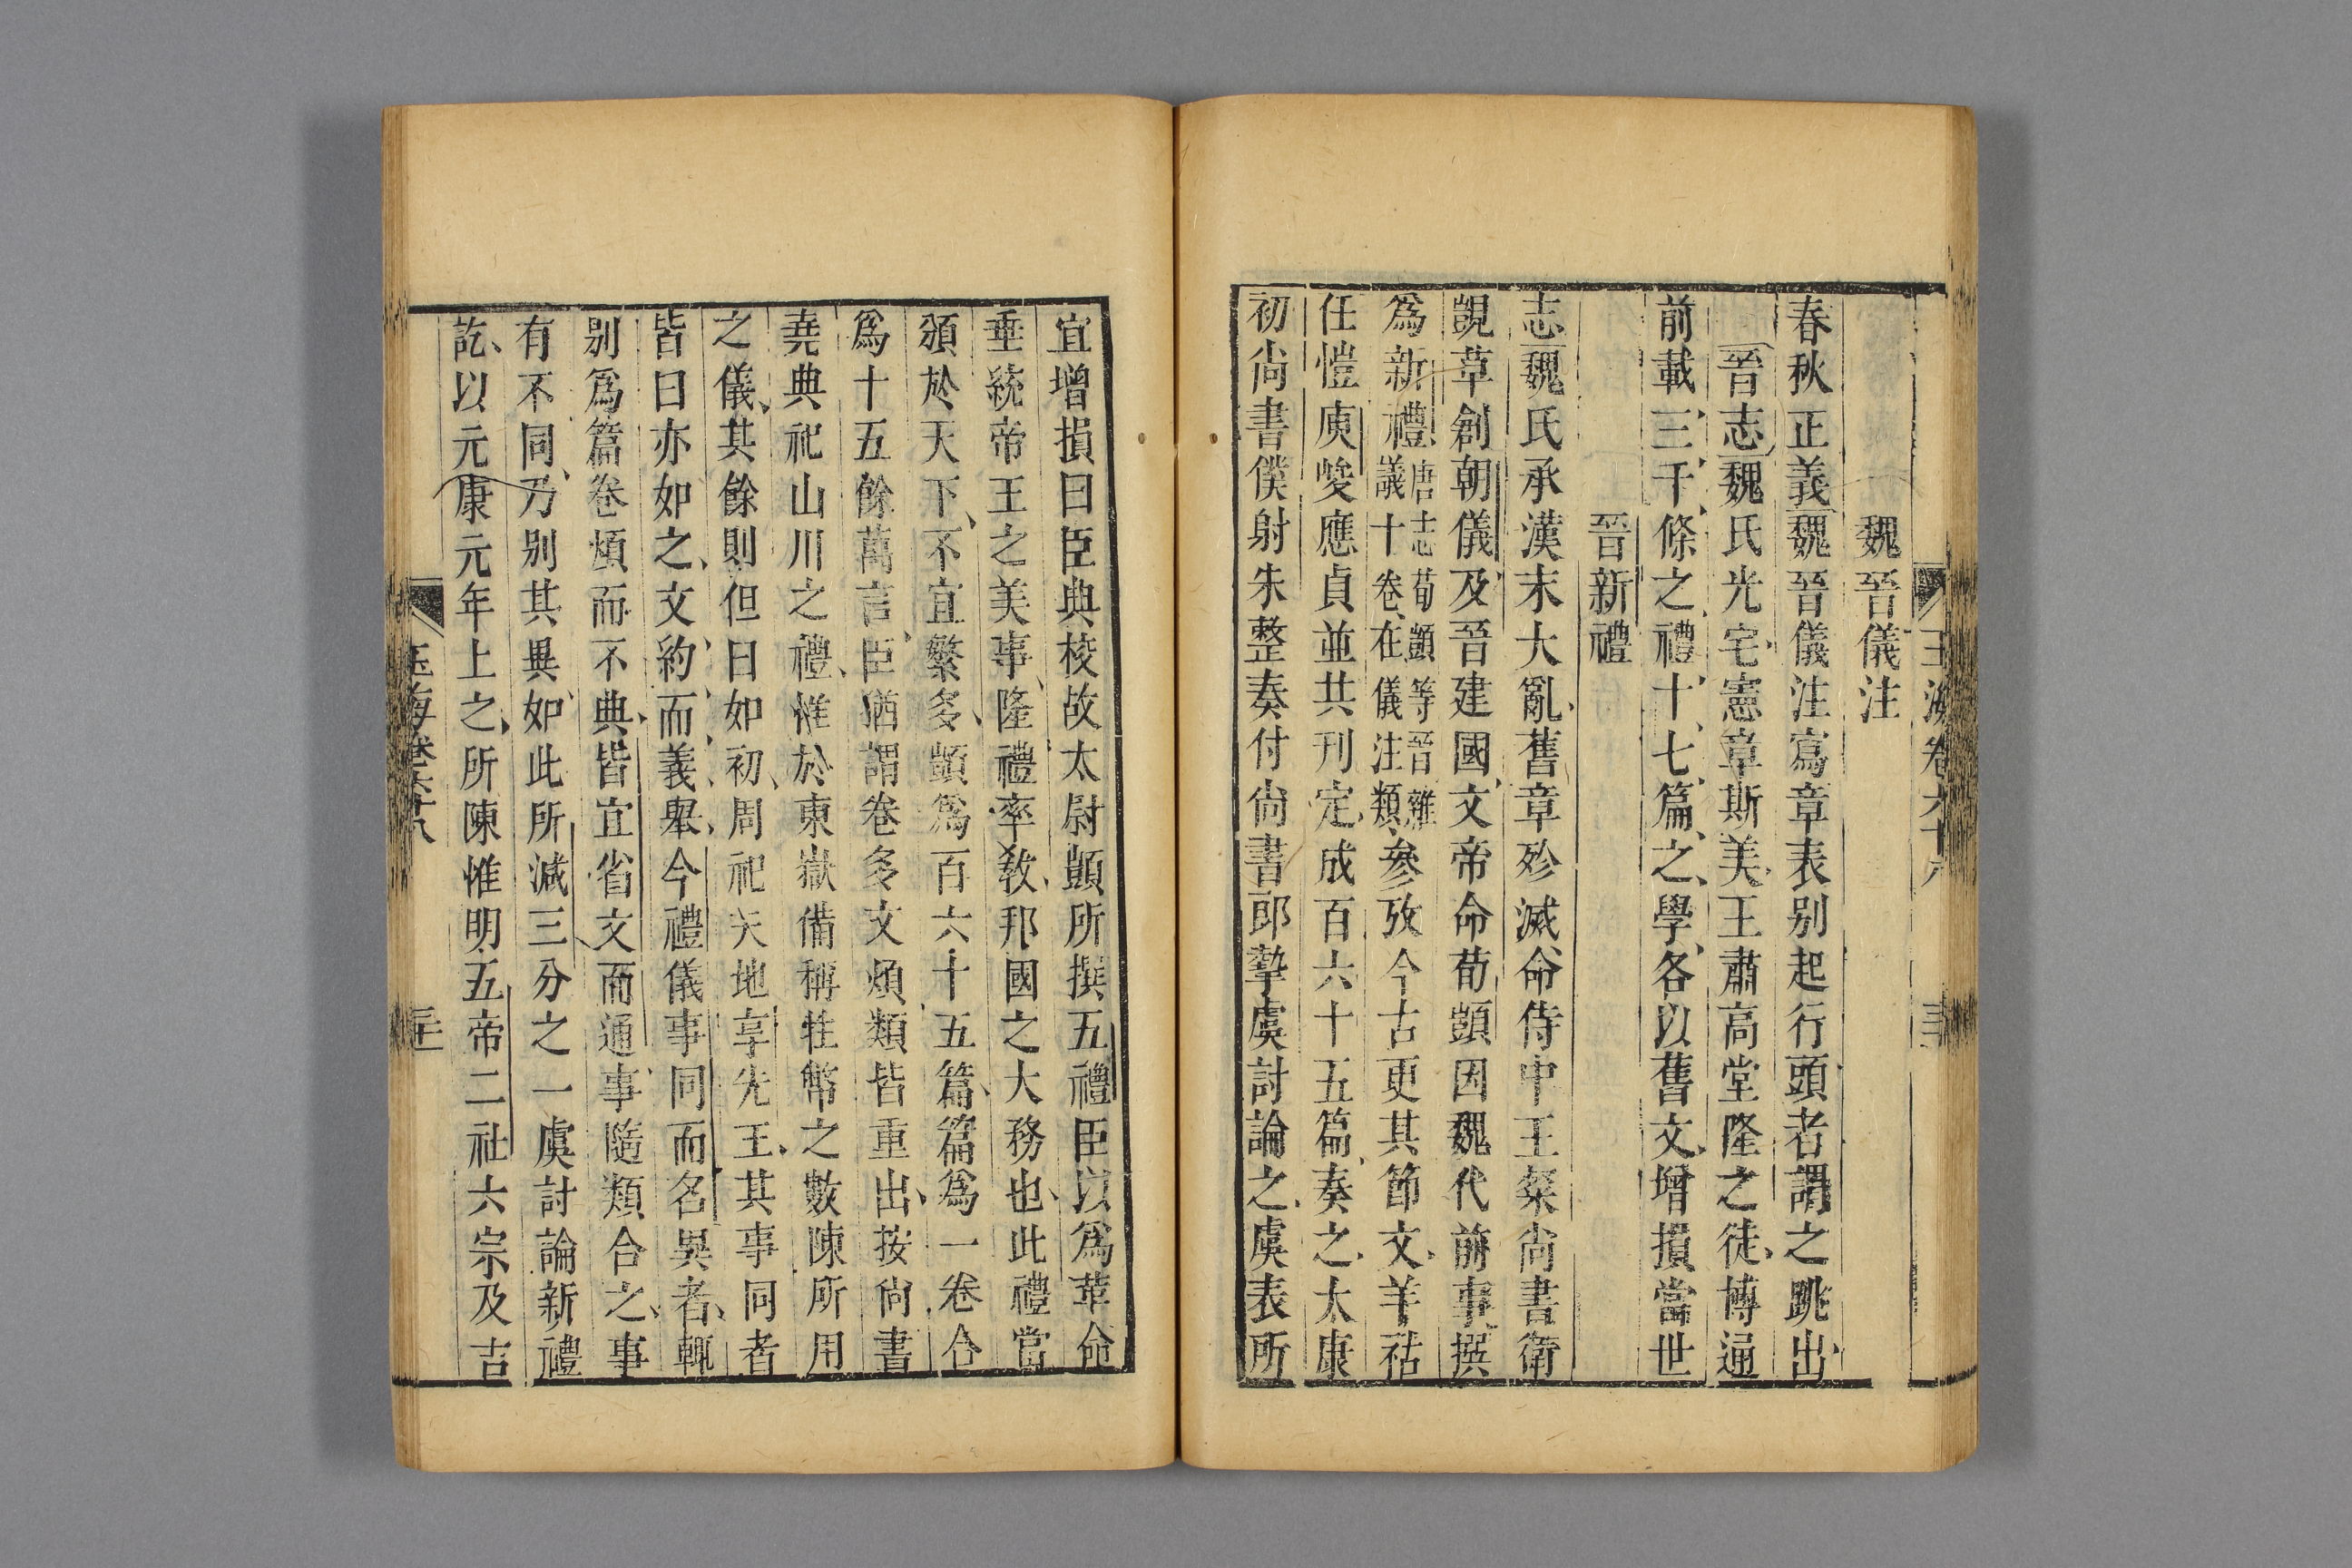 魏晉儀注
春秋正義魏晉儀注寫章表别起行頭者謂之跳出
晉志魏氏光宅憲章斯美王肅高堂隆之徒博通
前載三千條之禮十七篇之學各以舊文增損當世
晉新禮
志魏氏承漢末大亂舊章殄滅命侍中王粲尚書衛
覬草創朝儀及晉建國文帝命荀顗因魏代前事撰
爲新禮唐志荀顗等晉雜議十卷在儀注類參攷今古更其節文羊祜
任愷庾峻應貞並共刊定成百六十五篇奏之太康
初尚書僕射朱整奏付尚書郎摯虞討論之虞表所
宜增損曰臣典校故太尉顗所撰五禮臣以爲革命
垂統帝王之美事隆禮率教邦國之大務也此禮當
頒於天下不宜繁多顗爲百六十五篇篇爲一卷合
爲十五餘萬言臣猶謂卷多文煩類皆重出按尚書
堯典祀山川之禮惟於東嶽備稱牲幣之數陳所用
之儀其餘則但曰如初周祀天地享先王其事同者
皆曰亦如之文約而義舉今禮儀事同而名異者輒
别爲篇卷煩而不典皆宜省文而通事隨類合之事
有不同乃别其異如此所減三分之一虞討論新禮
訖以元康元年上之所陳惟明五帝二社六宗及吉
玉海卷六十八